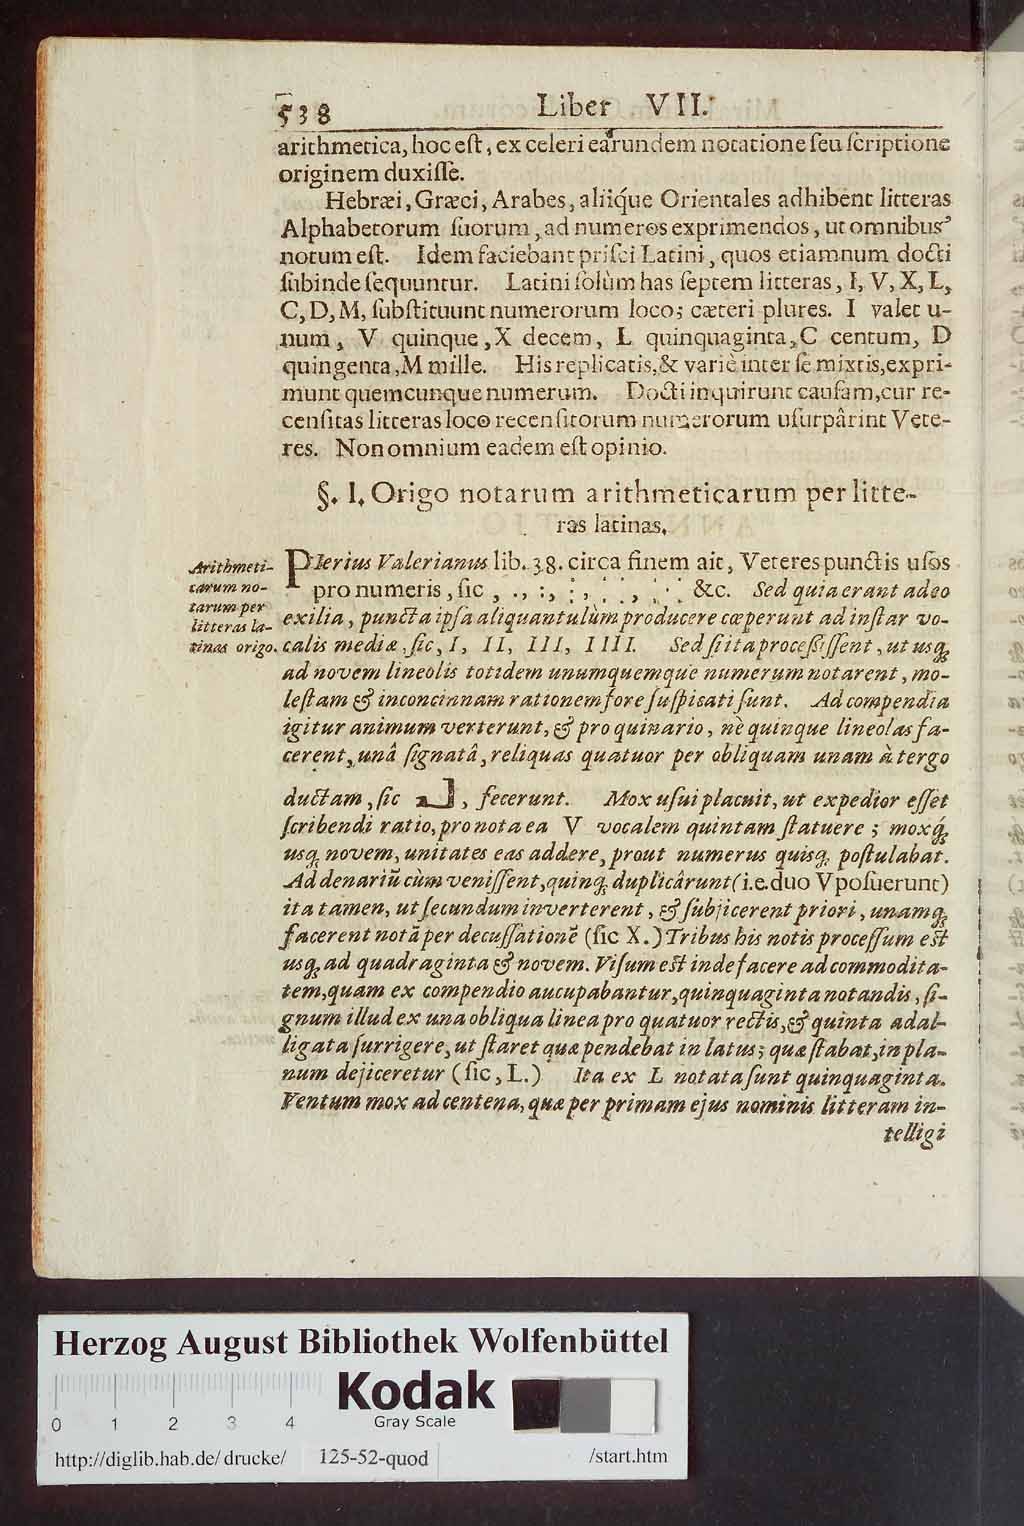 538 Liber VII.
arithmetica, hoc eſt, ex celeri earundem notatione ſeu ſcriptione
originem duxiſſe.
Hebræi, Græci, Arabes, aliiq́ue Orientales adhibent litteras
Alphabetorum ſuorum, ad numeros exprimendos, ut omnibus
notum eſt. Idem faciebant priſci Latini, quos etiamnum docti
ſubinde ſequuntur. Latini ſolùm has ſeptem litteras, I, V, X, L,
C, D, M, ſubſtituunt numerorum loco; cæteri plures. I valet u-
num, V quinque, X decem, L quinquaginta, C centum, D
quingenta, M mille. His replicatis, & variè inter ſe mixtis, expri-
munt quemcunque numerum. Docti inquirunt cauſam, cur re-
cenſitas litteras loco recenſitorum numerorum uſurpârint Vete-
res. Non omnium eadem eſt opinio.
§. I. Origo notarum arithmeticarum per litte-
ras latinas.
Arithmeti-
carum no-
tarum per
litteras la-
tinas origo.
PIerius Valerianus lib. 38. circa finem ait, Veteres punctis uſos
pro numeris, ſic &c. Sed quia erant adeo
exilia, puncta ipſa aliquantulùm producere cœperunt ad inſtar vo-
calis mediæ, ſic, I, II, III, IIII. Sed ſi ita proceſsiſſent, ut usq́;
ad novem lineolis totidem unumquemque numerum notarent, mo-
leſtam & inconcinnam rationem fore ſuſpicati ſunt. Ad compendia
igitur animum verterunt, & pro quinario, nè quinque lineolas fa-
cerent, unâ ſignatâ, reliquas quatuor per obliquam unam à tergo
ductam, ſic , fecerunt. Mox uſui placuit, ut expedior eſſet
ſcribendi ratio, pro nota ea V vocalem quintam ſtatuere; moxq́;
usq; novem, unitates eas addere, prout numerus quisq; poſtulabat.
Ad denariũ cùm veniſſent, quinq; duplicârunt (i.e. duo V poſuerunt)
ita tamen, ut ſecundum inverterent, & ſubjicerent priori, unamq;
facerent notã per decuſſationẽ (ſic X.) Tribus his notis proceſſum eſt
usq; ad quadraginta & novem. Viſum eſt inde facere ad commodita-
tem, quam ex compendio aucupabantur, quinquaginta notandis, ſi-
gnum illud ex una obliqua linea pro quatuor rectis, & quinta adal-
ligata ſurrigere, ut ſtaret quæ pendebat in latus; quæ ſtabat, in pla-
num dejiceretur (ſic, L.) Ita ex L notata ſunt quinquaginta.
Ventum mox ad centena, quæ per primam ejus nominis litteram in-
telligi
Herzog August Bibliothek Wolfenbüttel
Kodak
Gray Scale
0 1 2 3 4
http://diglib.hab.de/drucke/ 125-52-quod /start.htm